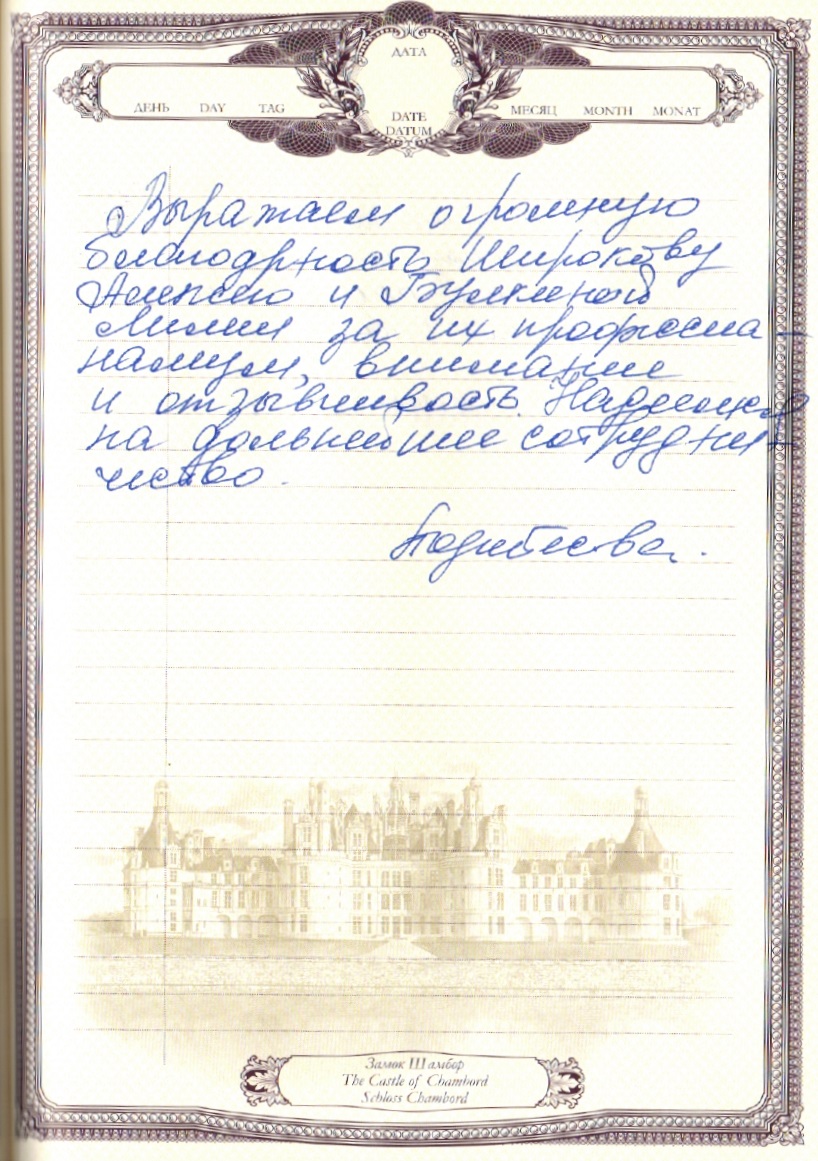 ДАТА
ДЕНЬ DAY TAG
DATE
DATUM
МЕСЯЦ MONTH MONAT
Выражаем огромную
благодрность Широкову
Алексею и
Лилии за их професиа-
нализм, внимание
и отзывчивость. Надеемся
на дальнейшее сотрудни-
чество.
Замок Шамбор
The Castle of Chambord
Schloss Chambord